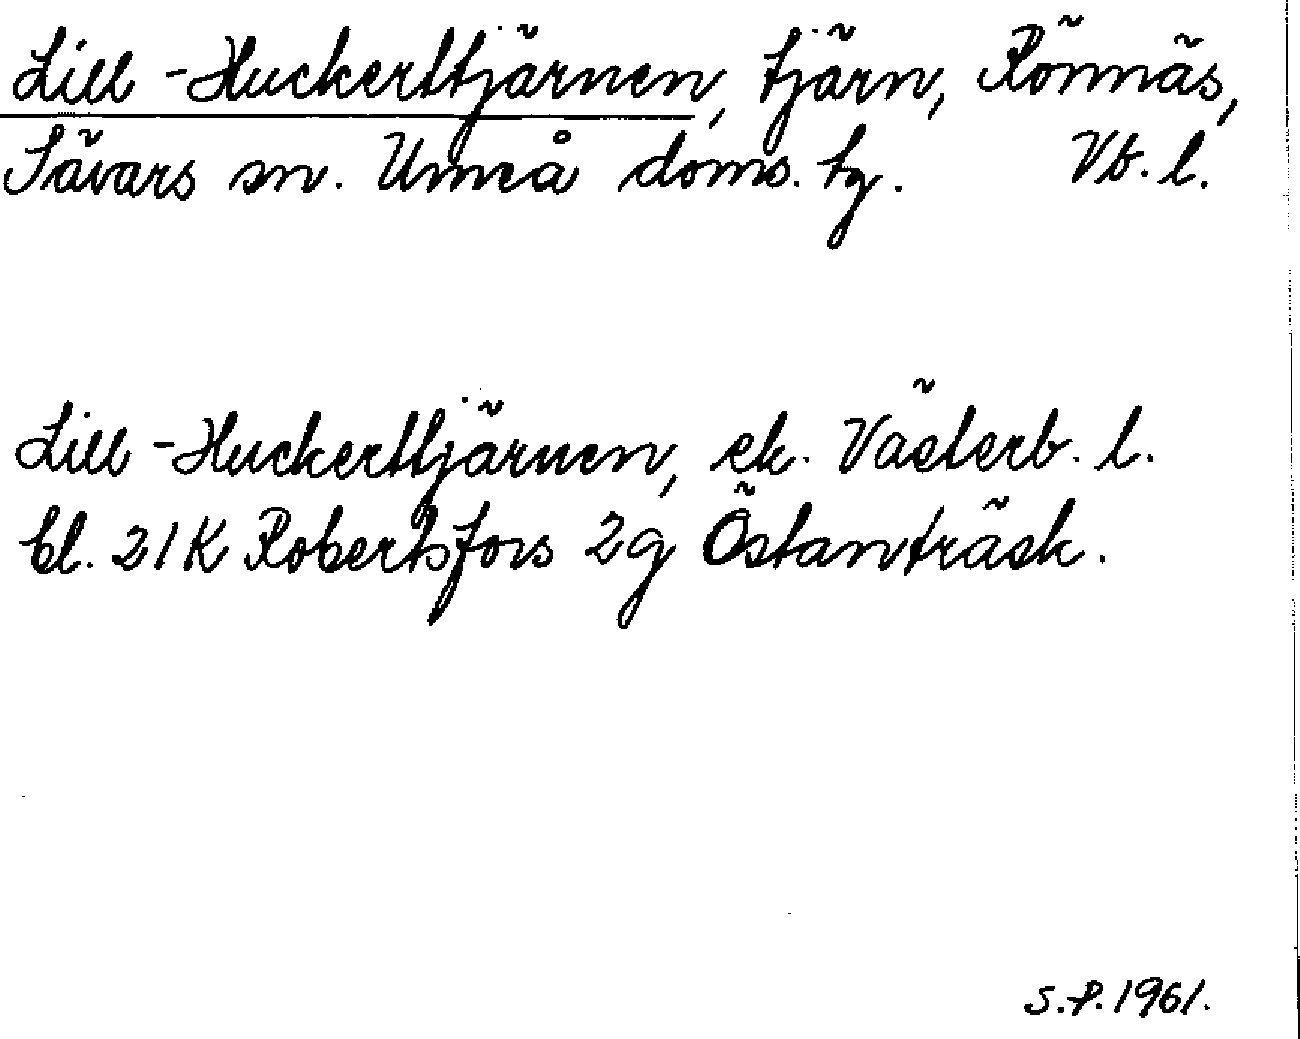 Lill-Huckerttjärnen, tjärn, Rönnäs,
Sävars sn. Umeå doms. tg. Vb. l.
Lill-Huckerttjärnen, ek. Västerb. l.
bl. 21K Robertsfors 2g Östanträsk.
S.P. 1961.